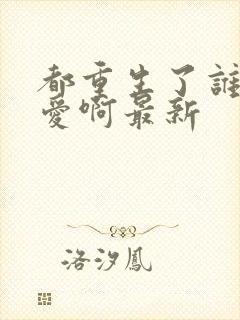 都重生了誰
愛啊最新
洛汐鳳